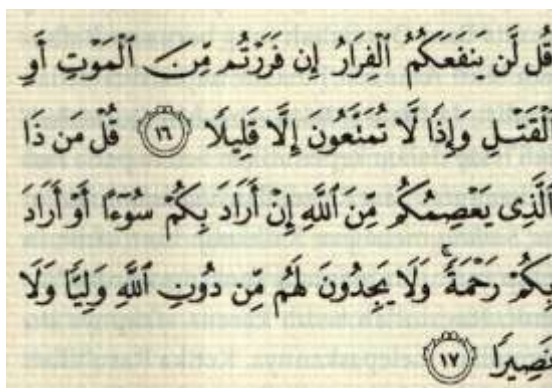 قُل لَّن يَنفَعَكُمُ الْفِرَارُ إِن فَرَرْتُم مِّنَ الْمَوْتِ أَوِ
الْقَتْلِ وَإِذًا لَّا تُمَتَّعُونَ إِلَّا قَلِيلًا ١٦ قُلْ مَن ذَا
الَّذِي يَعْصِمُكُم مِّنَ اللَّهِ إِنْ أَرَادَ بِكُمْ سُوءًا أَوْ أَرَادَ
بِكُمْ رَحْمَةً ۚ وَلَا يَجِدُونَ لَهُم مِّن دُونِ اللَّهِ وَلِيًّا وَلَا
نَصِيرًا ١٧